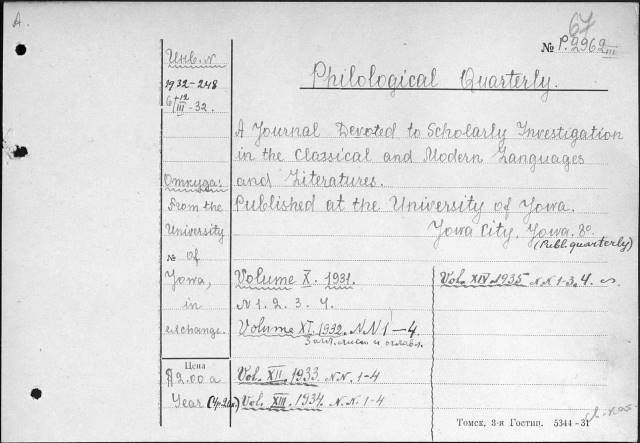 A.
67
№ P.2962 III
Инв. N
1932-248
6/III-32.
Philological Quarterly.
A Journal Devoted to Scholarly Investigation
in the Classical and Modern Languages
and Literatures.
Published at the University of Yowa.
Yowa City, Yowa. 8º
(Publ. quarterly)
Откуда:
From the
University
№ of
Yowa,
in
exchange.
Volume X. 1931.
N 1. 2. 3. 4.
Volume XI. 1932. NN 1-4
Загл. лист и оглавл.
Vol. XII. 1933. N.N. 1-4
Vol. XIII. 1934. N.N. 1-4
Vol. XIV. 1935 N.N. 1-3, 4.
Цена
$2.00 a
Year
Томск, 3-я Гостип. 5344-31